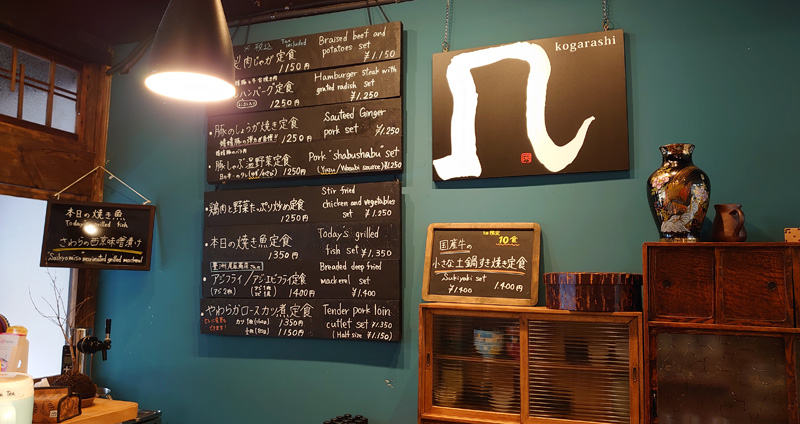 税込
Tax included
Braised beef and
potatoes set
¥1.150
肉じゃが定食
1150円
Hamburger steak with
grated radish set
¥1.250
ハンバーグ定食
1250円
豚のしょうが焼き定食
1250円
Sauteed Ginger
pork set ¥1.250
豚しゃぶ温野菜定食
1250円
Pork "shabushabu" set
(Yuzu/Wasabi source) ¥1.250
鶏肉と野菜たっぷり炒め定食
1250円
Stir fried
chicken and vegetables
set ¥1.250
本日の焼き魚定食
1350円
Today's grilled
fish set ¥1.350
アジフライ/アジエビフライ定食
1400円 1400円
Breaded deep fried
mackerel set
¥1.400
やわらかロースカツ煮定食
1350円
1150円
Tender pork loin
cutlet set ¥1350
(Half size ¥1.150)
kogarashi
本日の焼き魚
Today's grilled fish
さわらの西京味噌漬け
限定
10食
国産牛の
小さな土鍋すき焼き定食
Sukiyaki set
¥1400 1400円